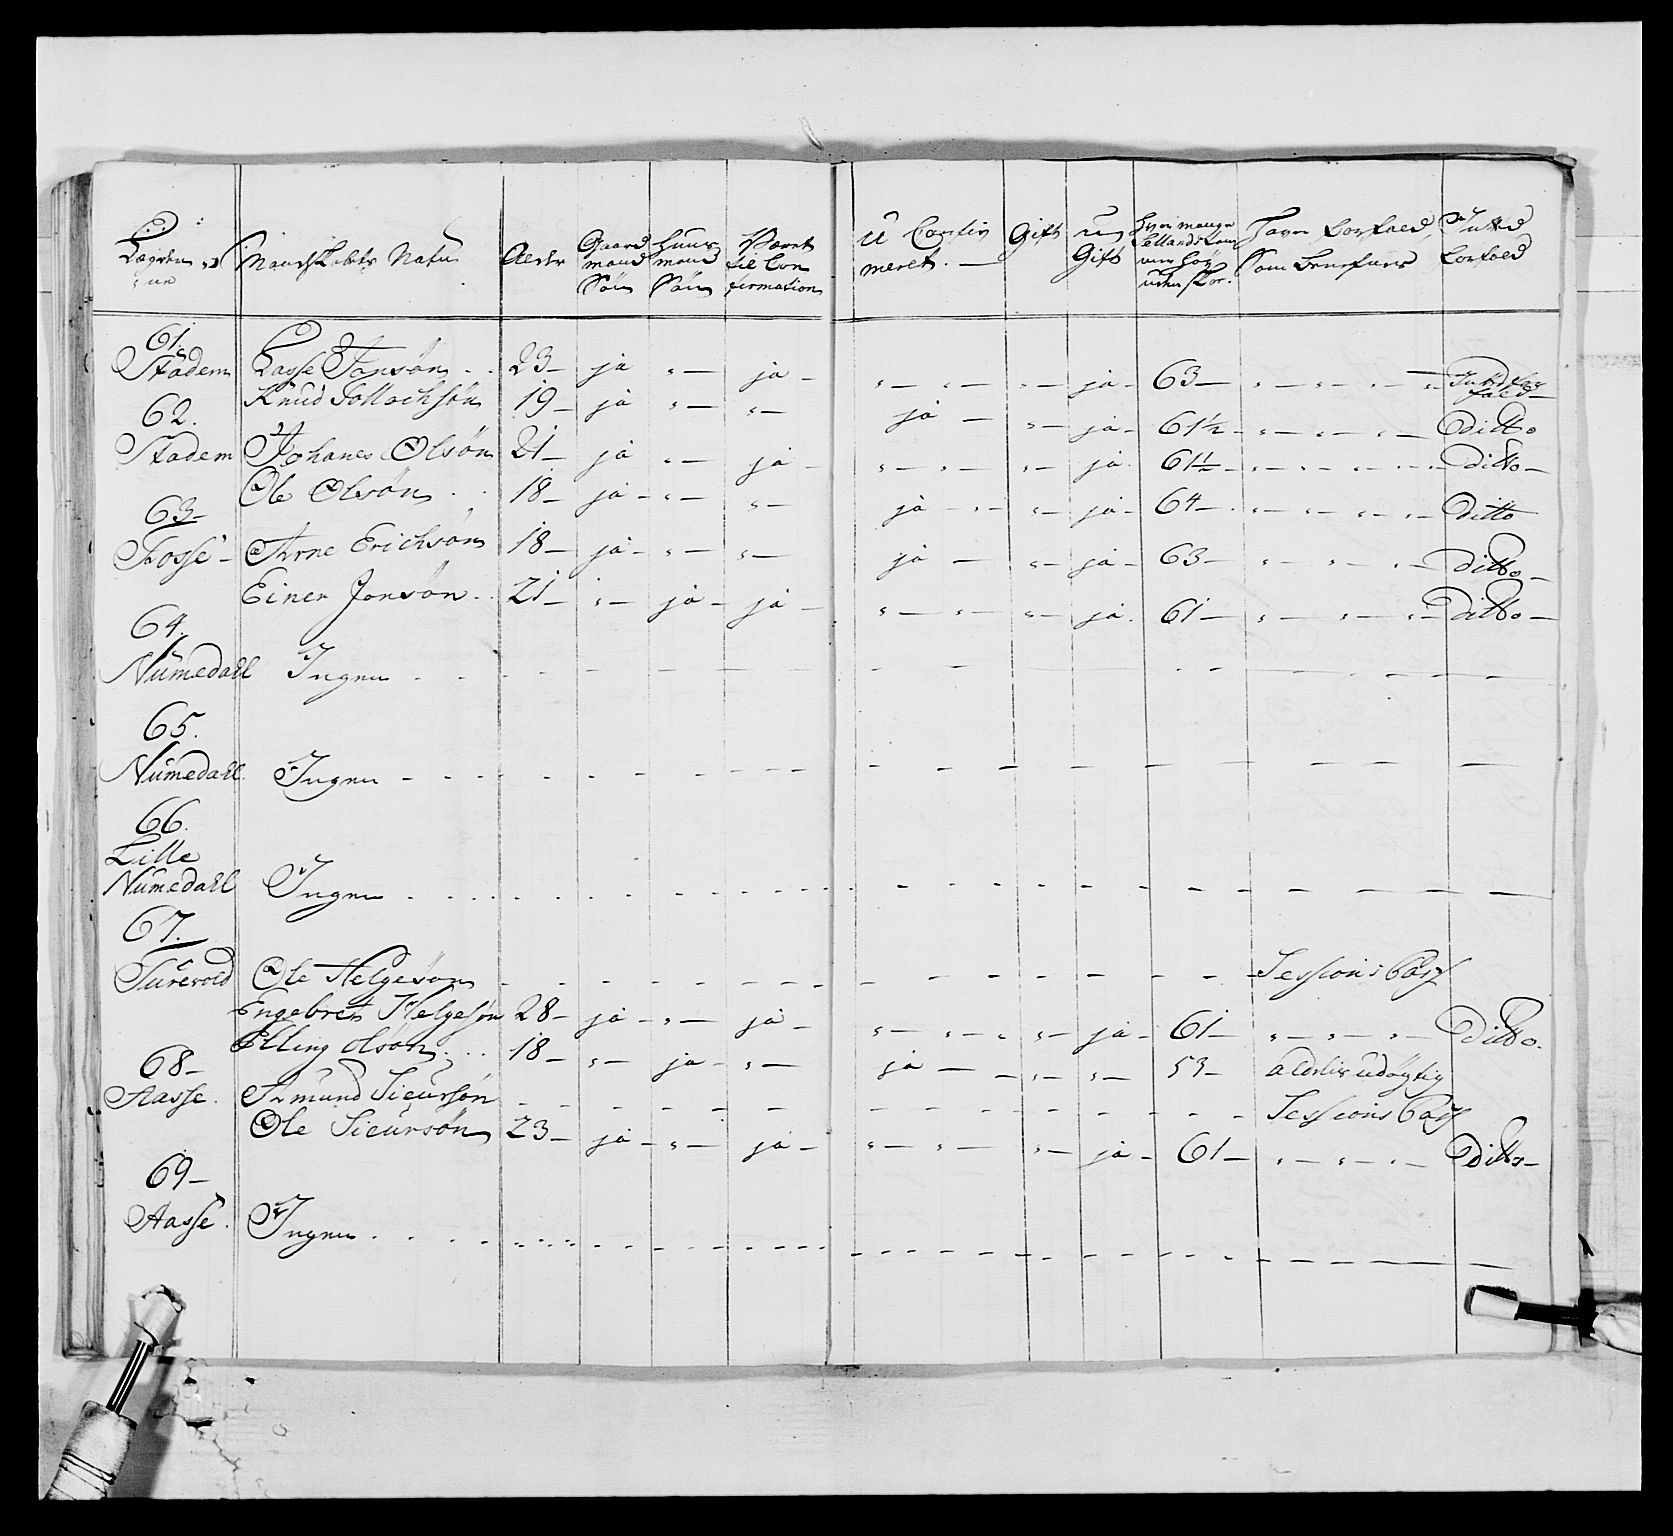 Mandskabets Nafn
Alder
Gaard mand Søn
Huus mand Søn
Været til Con firmation
u Confir meret.
Gift
u Gift
Hvor mange Sellands Tom
Som
Intet Forfald
61.
Stadem Lasse Jonsøn 23 ja " ja " " " ja 63 " " " Intet for fald
Knud Tollachsøn 19 ja " " ja " ja 61½ " " " Ditto
62.
Stadem Johanes Olsøn 21 ja " ja " " " ja 61½ " " Ditto
Ole Olsøn 18 ja " " ja " " ja 64 " " " Ditto
63
Fosse Arne Erichsøn 18 ja " " ja " ja 63 " " " Ditto
Einer Jonsøn 21 " ja ja " " " ja 61 " " " Ditto
64.
Numedahl Ingen
65.
Numedahl. Ingen
66.
Lille
Numedahl Ingen
67.
Turevold Ole Helgesøn Sessions Pas
Engebret Helgesøn 28 ja " ja " " " ja 61 " " " Ditto.
Elling olsøn 18 " ja " ja " " 53 aldelis udøgtig
68
Aasse. Amund Sieursøn Sessions Pas
Ole Sieursøn 23 ja " ja " " " ja 61 " " " Ditto
69
Aasse. Ingen